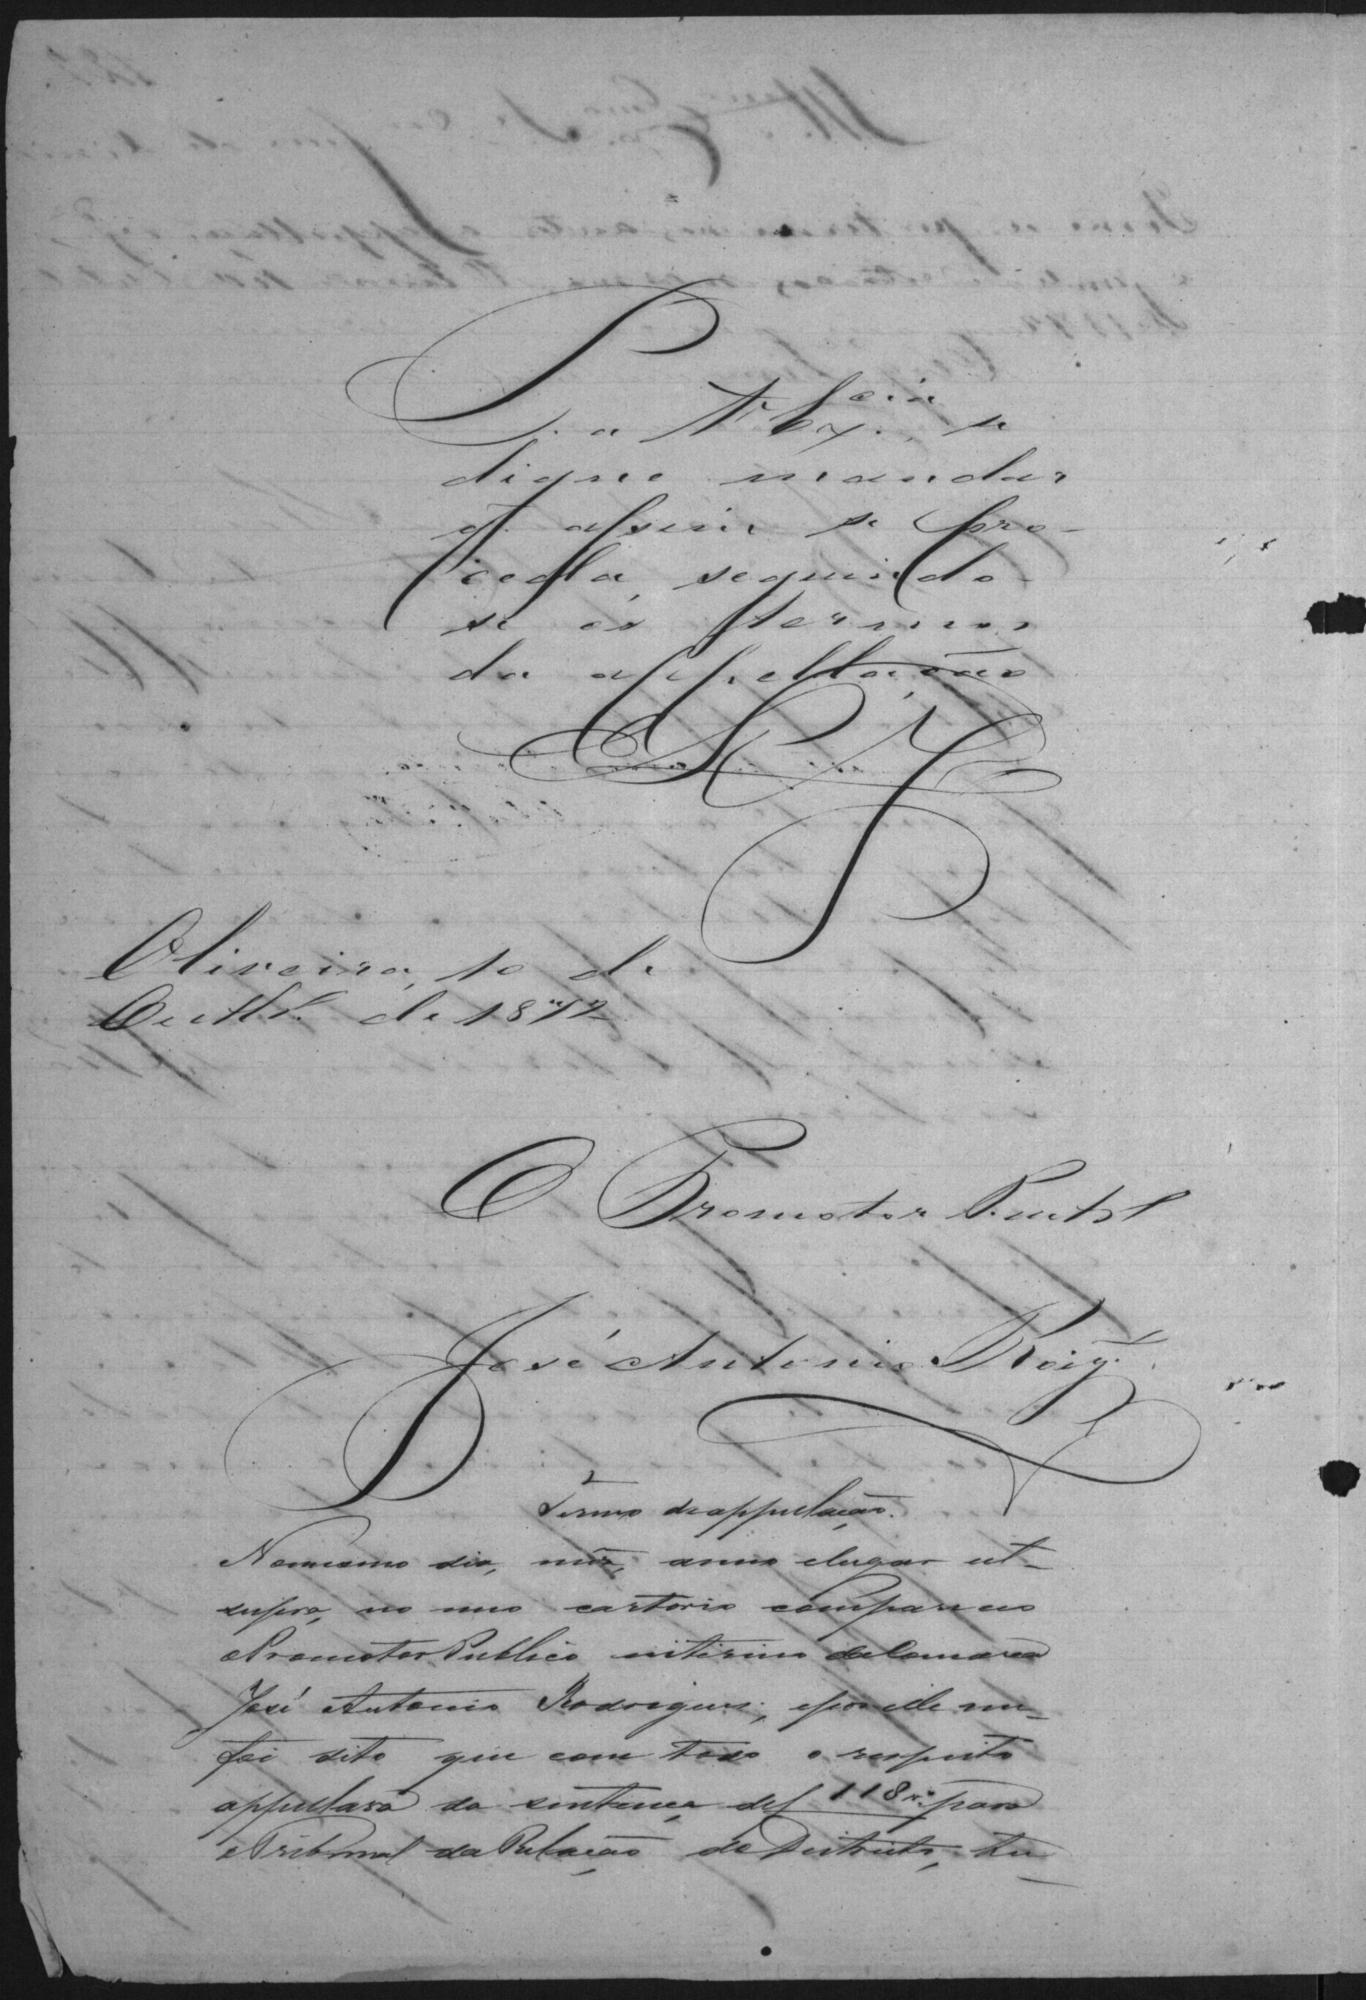 P. a V. Ex.cia se
digne mandar
q. assim se pro-
ceda, seguindo-
se os termos
da appellação
E. R. J.
Oliveira, 10 de
Outbr.º de 1872
O Promotor Int.º
José Antonio Roiz.
Termo de appellação.
No mesmo dia, mez, anno e lugar ut-
supra, no meo cartorio compareceo
o Promotor Publico interino da Comarca
José Antonio Rodrigues, e por elle me-
foi dito que com todo o respeito
appellava da sentença de f 118 v.º para
o Tribunal da Relação do Districto,